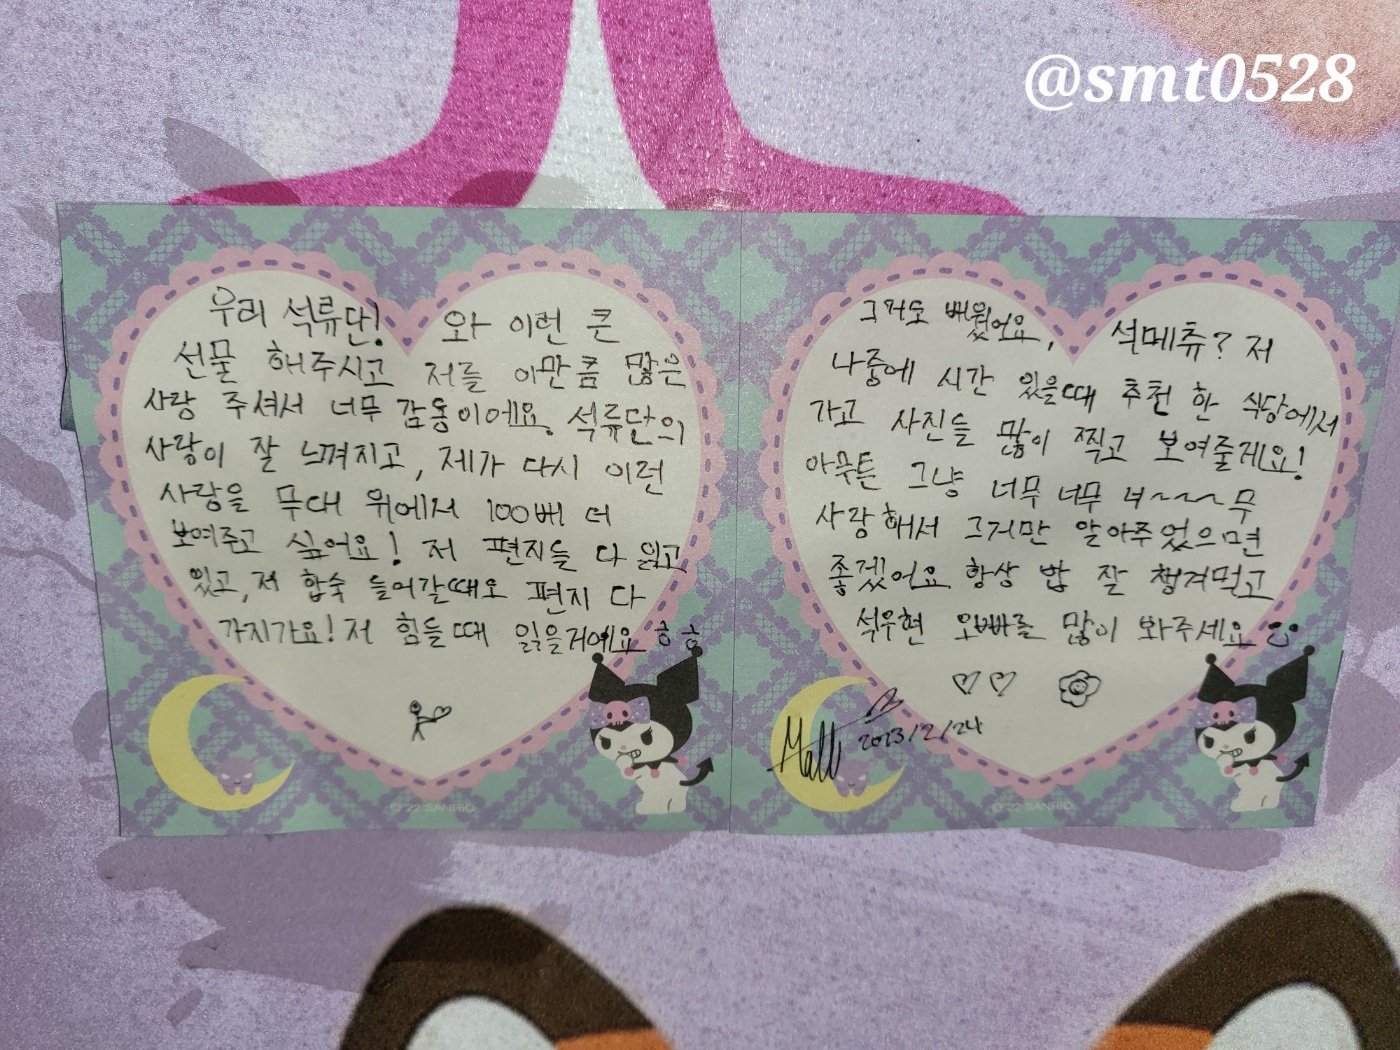 @smt0528
우리 석류단! 와 이런 큰
선물 해주시고 저를 이만큼 많은
사랑 주셔서 너무 감동이에요. 석류단의
사랑이 잘 느껴지고, 제가 다시 이런
사랑을 무대 위에서 100배 더
보여주고 싶어요! 저 편지들 다 읽고
있고, 저 합숙 들어갈때도 편지 다
가지가요! 저 힘들때 읽을거에요 ㅎㅎ
그거도 배웠어요, 석메츄? 저
나중에 시간 있을때 추천 한 식당에서
가고 사진들 많이 찍고 보여줄게요!
아무튼 그냥 너무 너무 너~~~~무
사랑해서 그거만 알아주었으면
좋겠어요 항상 밥 잘 챙겨먹고
석우현 오빠를 많이 봐주세요
Matt 2023/2/24
©'22 SANRIO
©'22 SANRIO